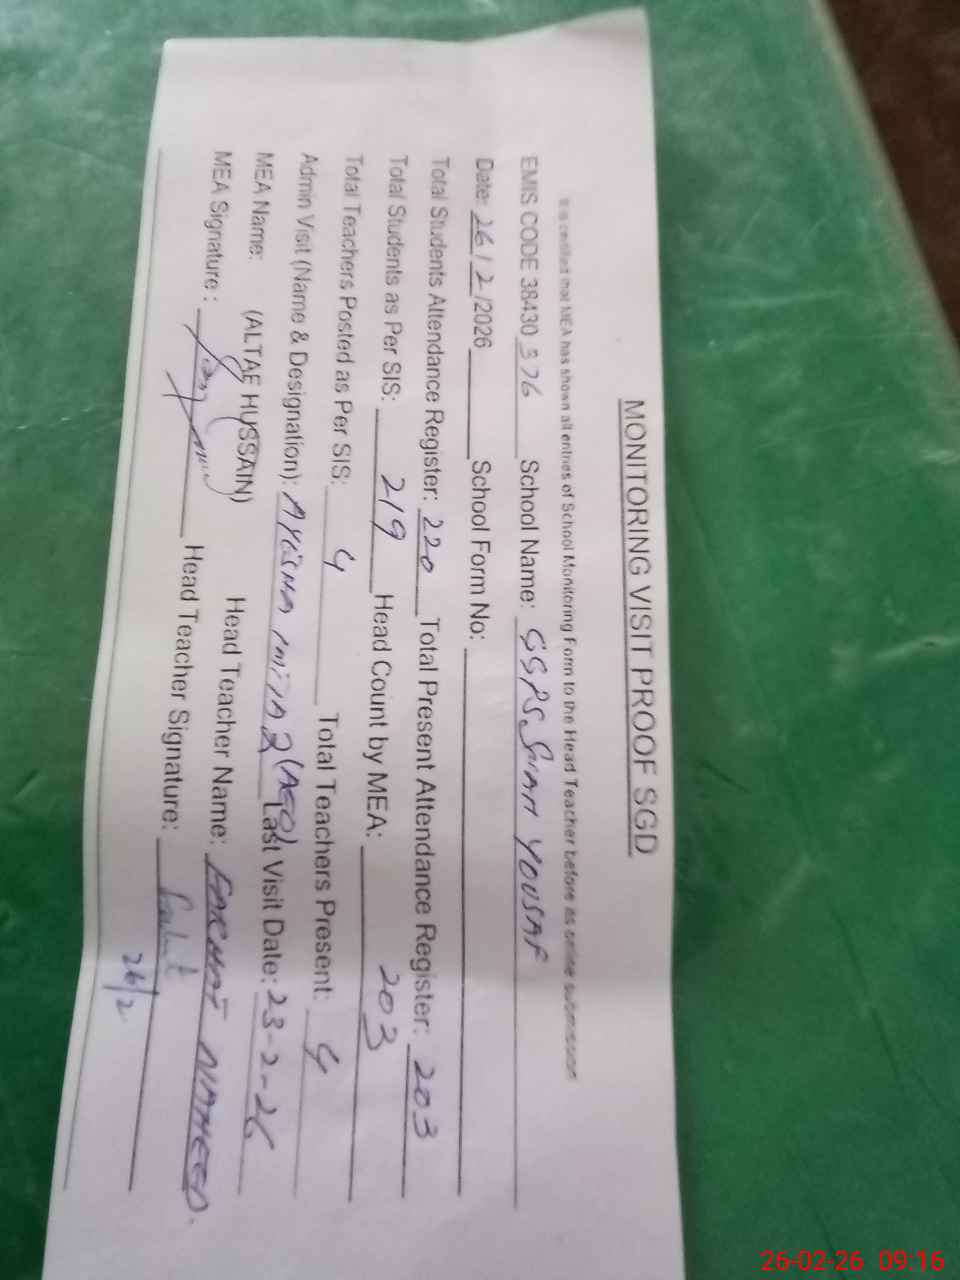 MONITORING VISIT PROOF SGD
It is certified that MEA has shown all entries of School Monitoring Form to the Head Teacher before as online submission
EMIS CODE 38430 376 School Name: GGPS SHAH YOUSAF
Date: 26/2/2026 School Form No:
Total Students Attendance Register: 220 Total Present Attendance Register: 203
Total Students as Per SIS: 219 Head Count by MEA: 203
Total Teachers Posted as Per SIS: 4 Total Teachers Present: 4
Admin Visit (Name & Designation): AYESHA (AEO) Last Visit Date: 23-2-26
MEA Name: (ALTAF HUSSAIN) Head Teacher Name: FARHAT
MEA Signature: Head Teacher Signature:
26/2
26-02-26 09:16